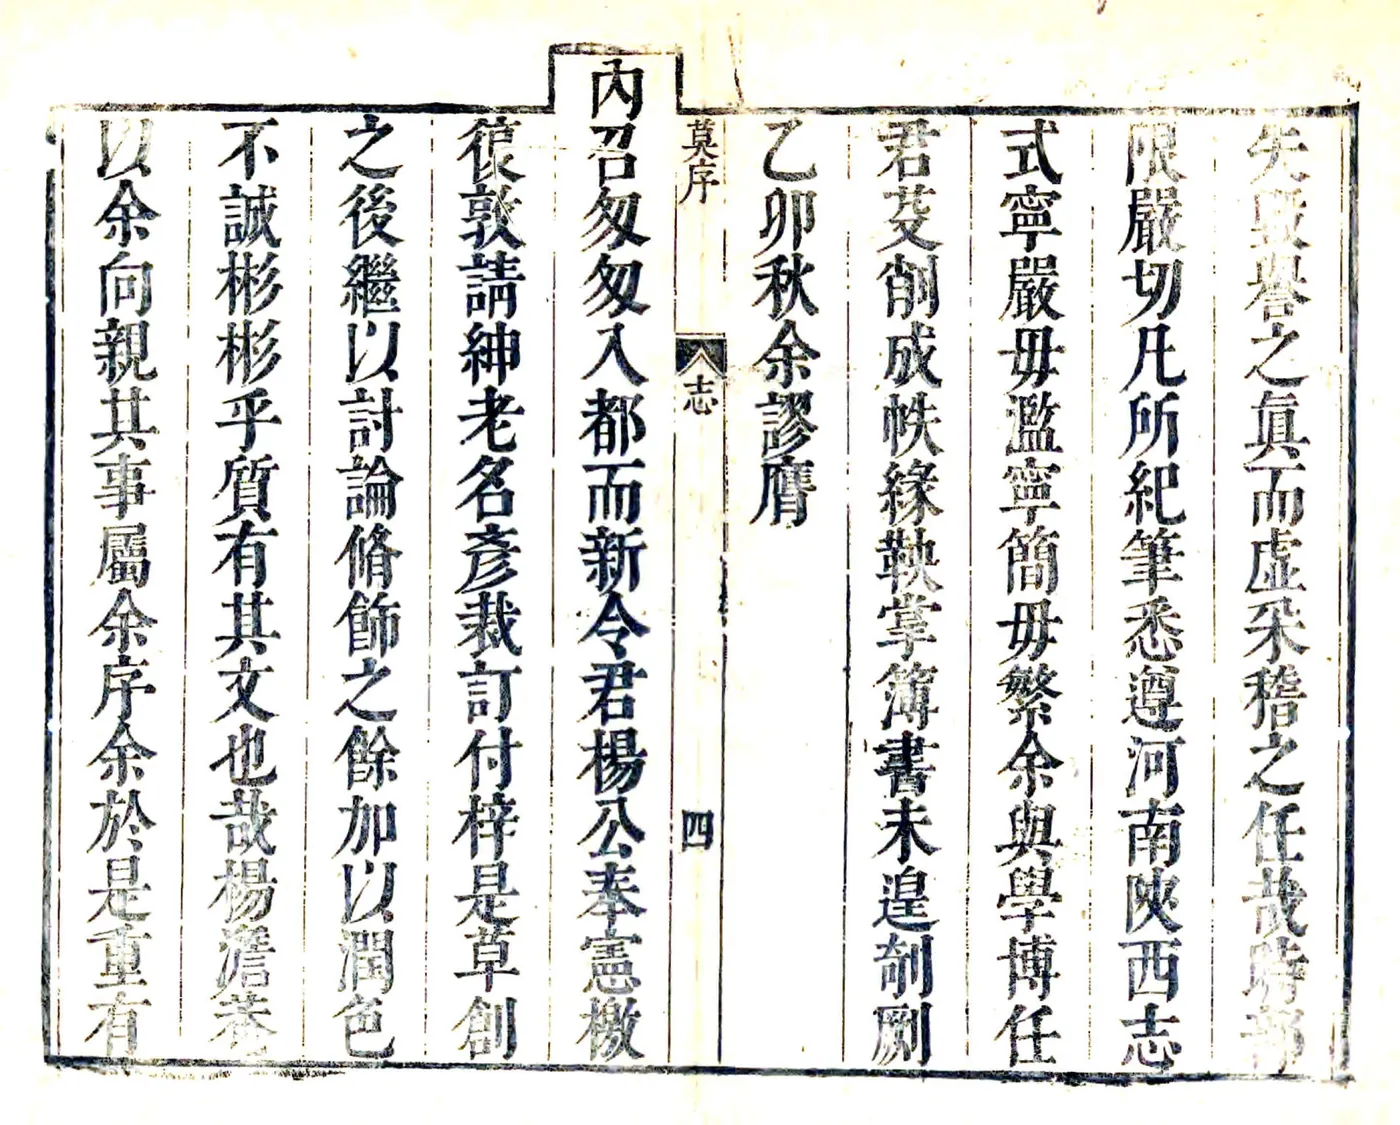 失毀譽之眞而虛采稽之任哉時部
限嚴切凡所紀筆悉遵河南陝西志
式寧嚴毋濫寧簡毋繁余與學博任
君芟削成帙緣鞅掌簿書未遑剞劂
乙卯秋余謬膺
莫序 志 四
內召匆匆入都而新令君楊公奉憲檄
復敦請紳老名彥裁訂付梓是草創
之後繼以討論脩飾之餘加以潤色
不誠彬彬乎質有其文也哉楊澹菴
以余向親其事屬余序余於是重有